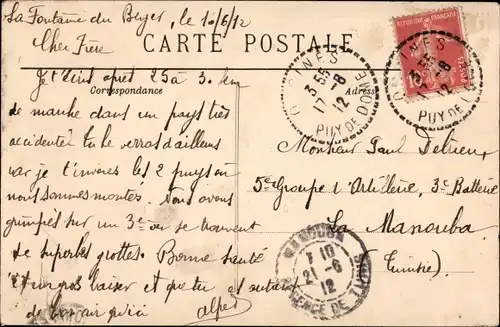 La Fontaine du Berger, le 10/6/12
Cher Frère
CARTE POSTALE
Correspondance
Adresse
Je t'écris après 25 à 3. km
de marche dans un pays très
accidenté tu le verras d'ailleurs
car je t'envoies les 2 puys où
nous sommes montés. Nous avons
grimpés sur un 3e où se trouvent
de superbes grottes. Bonne santé
et un gros baiser et que tu
de bon air qu'ici
Alfred
Monsieur Paul
5e Groupe d'Artillerie, 3e Batterie
La Manouba
(Tunisie)
RÉPUBLIQUE FRANÇAISE
POSTES
10
3 55
17 -8
12
PUY DE DOME
NES
-8
12
PUY DE
MANOUBA
7 10
21 -6
12
REGENCE DE TUNIS